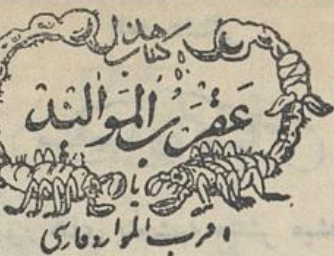 هذا
کتاب
عقرب الموالند
یا
اقرب الموارد فارسی